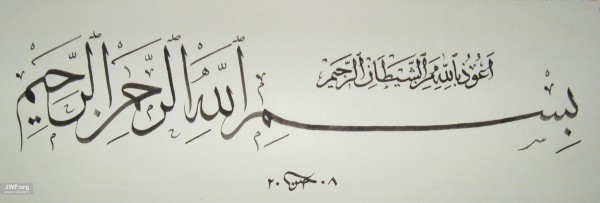 أعوذ بالله من الشيطان الرجيم
بسم الله الرحمن الرحيم
٢٠ حسن ٠٨
2WF.org